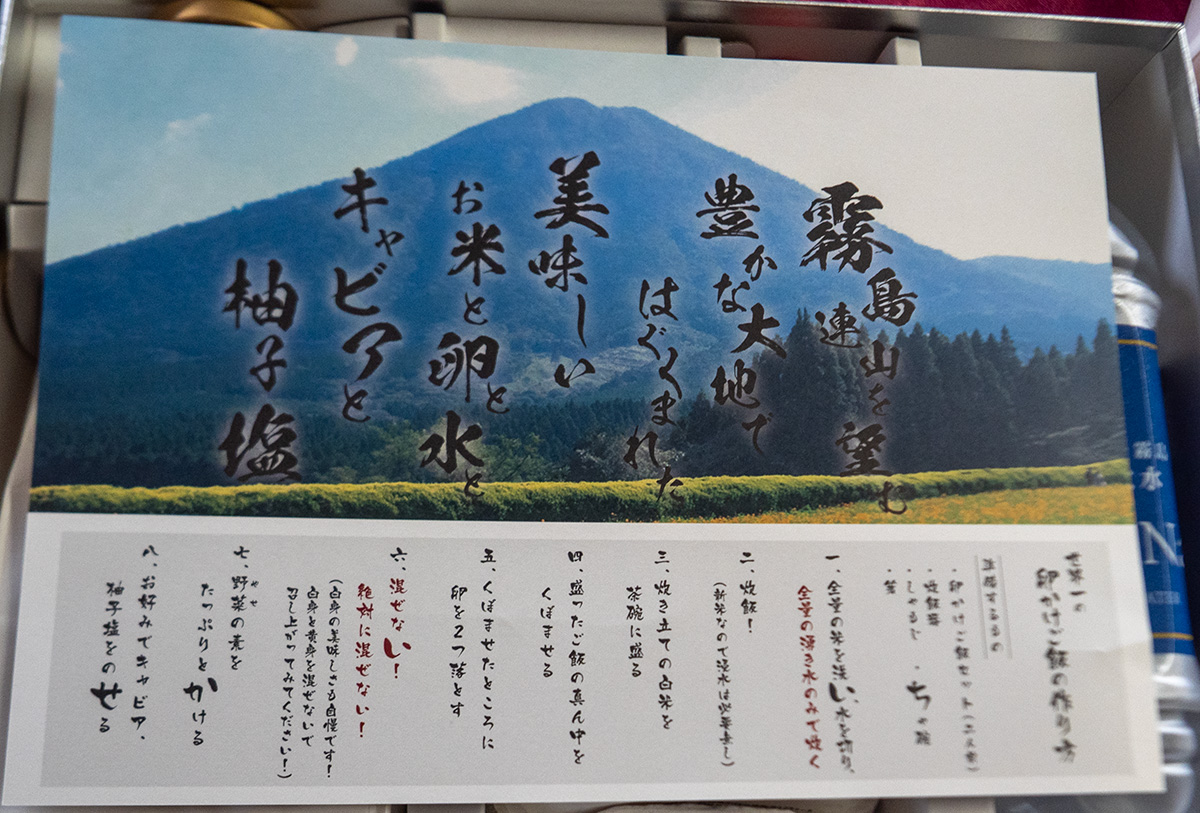 霧島連山を望む
豊かな大地で
はぐくまれた
美味しい
お米と卵と水と
キャビアと
柚子塩
世界一の
卵かけご飯の作り方
準備するもの
・卵かけご飯セット(二人前)
・炊飯器
・しゃもじ ・ちゃ碗
・箸
一、全量の米を洗い、水を切り、
全量の湧き水のみで炊く
二、炊飯!
(新米なので浸水は必要無し)
三、炊き立ての白米を
茶碗に盛る
四、盛ったご飯の真ん中を
くぼませる
五、くぼませたところに
卵を2つ落とす
六、混ぜない!
絶対に混ぜない!
(白身の美味しさも自慢です!
白身と黄身を混ぜないで
召し上がってみてください!)
七、野菜の素を
やせ
たっぷりとかける
八、お好みでキャビア、
柚子塩をのせる
水
N